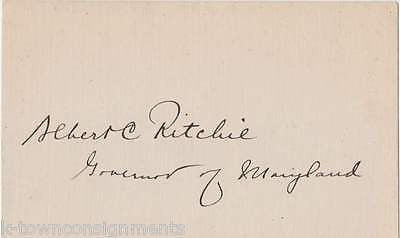 Albert C Ritchie
Governor of Maryland
k-townconsignments